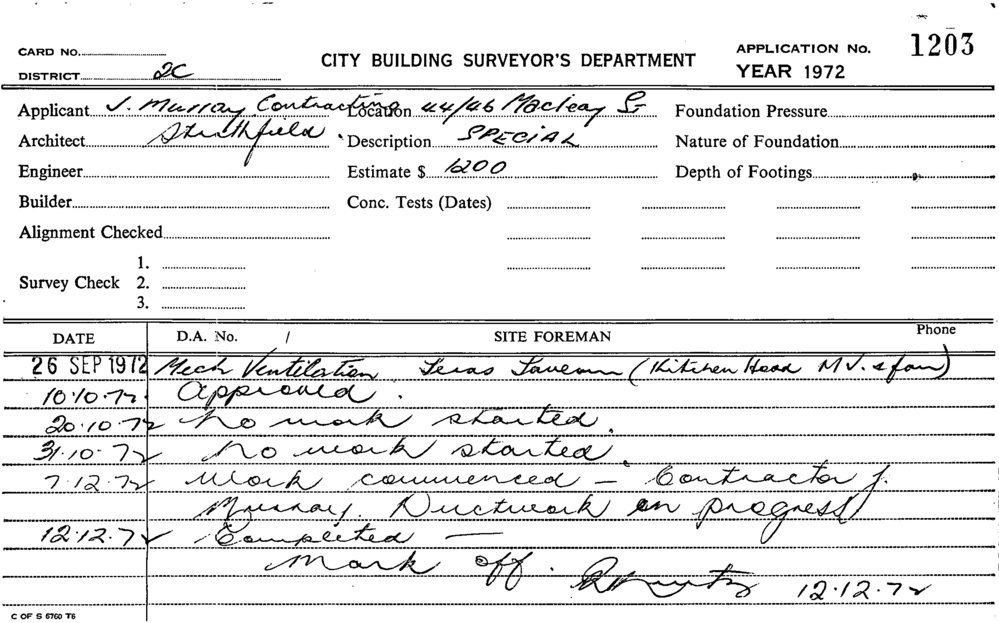 CARD No.
DISTRICT 2C
CITY BUILDING SURVEYOR'S DEPARTMENT
APPLICATION No. 1203
YEAR 1972
Applicant J. Murray Contracting Location 44/46 Macleay St Foundation Pressure
Architect Strathfield Description SPECIAL Nature of Foundation
Engineer Estimate $ 1200 Depth of Footings
Builder Conc. Tests (Dates)
Alignment Checked
Survey Check 1.
2.
3.
DATE D.A. No. / SITE FOREMAN Phone
26 SEP 1972 Mech Ventilation Texas Tavern (Kitchen Hood M.V. & fan)
10.10.72 Approved.
20.10.72 No work started.
31.10.72 No work started.
7.12.72 Work commenced – Contractor J.
Murray. Ductwork in progress
12.12.72 Completed —
Mark off. 12.12.72
C OF S 6760 T6